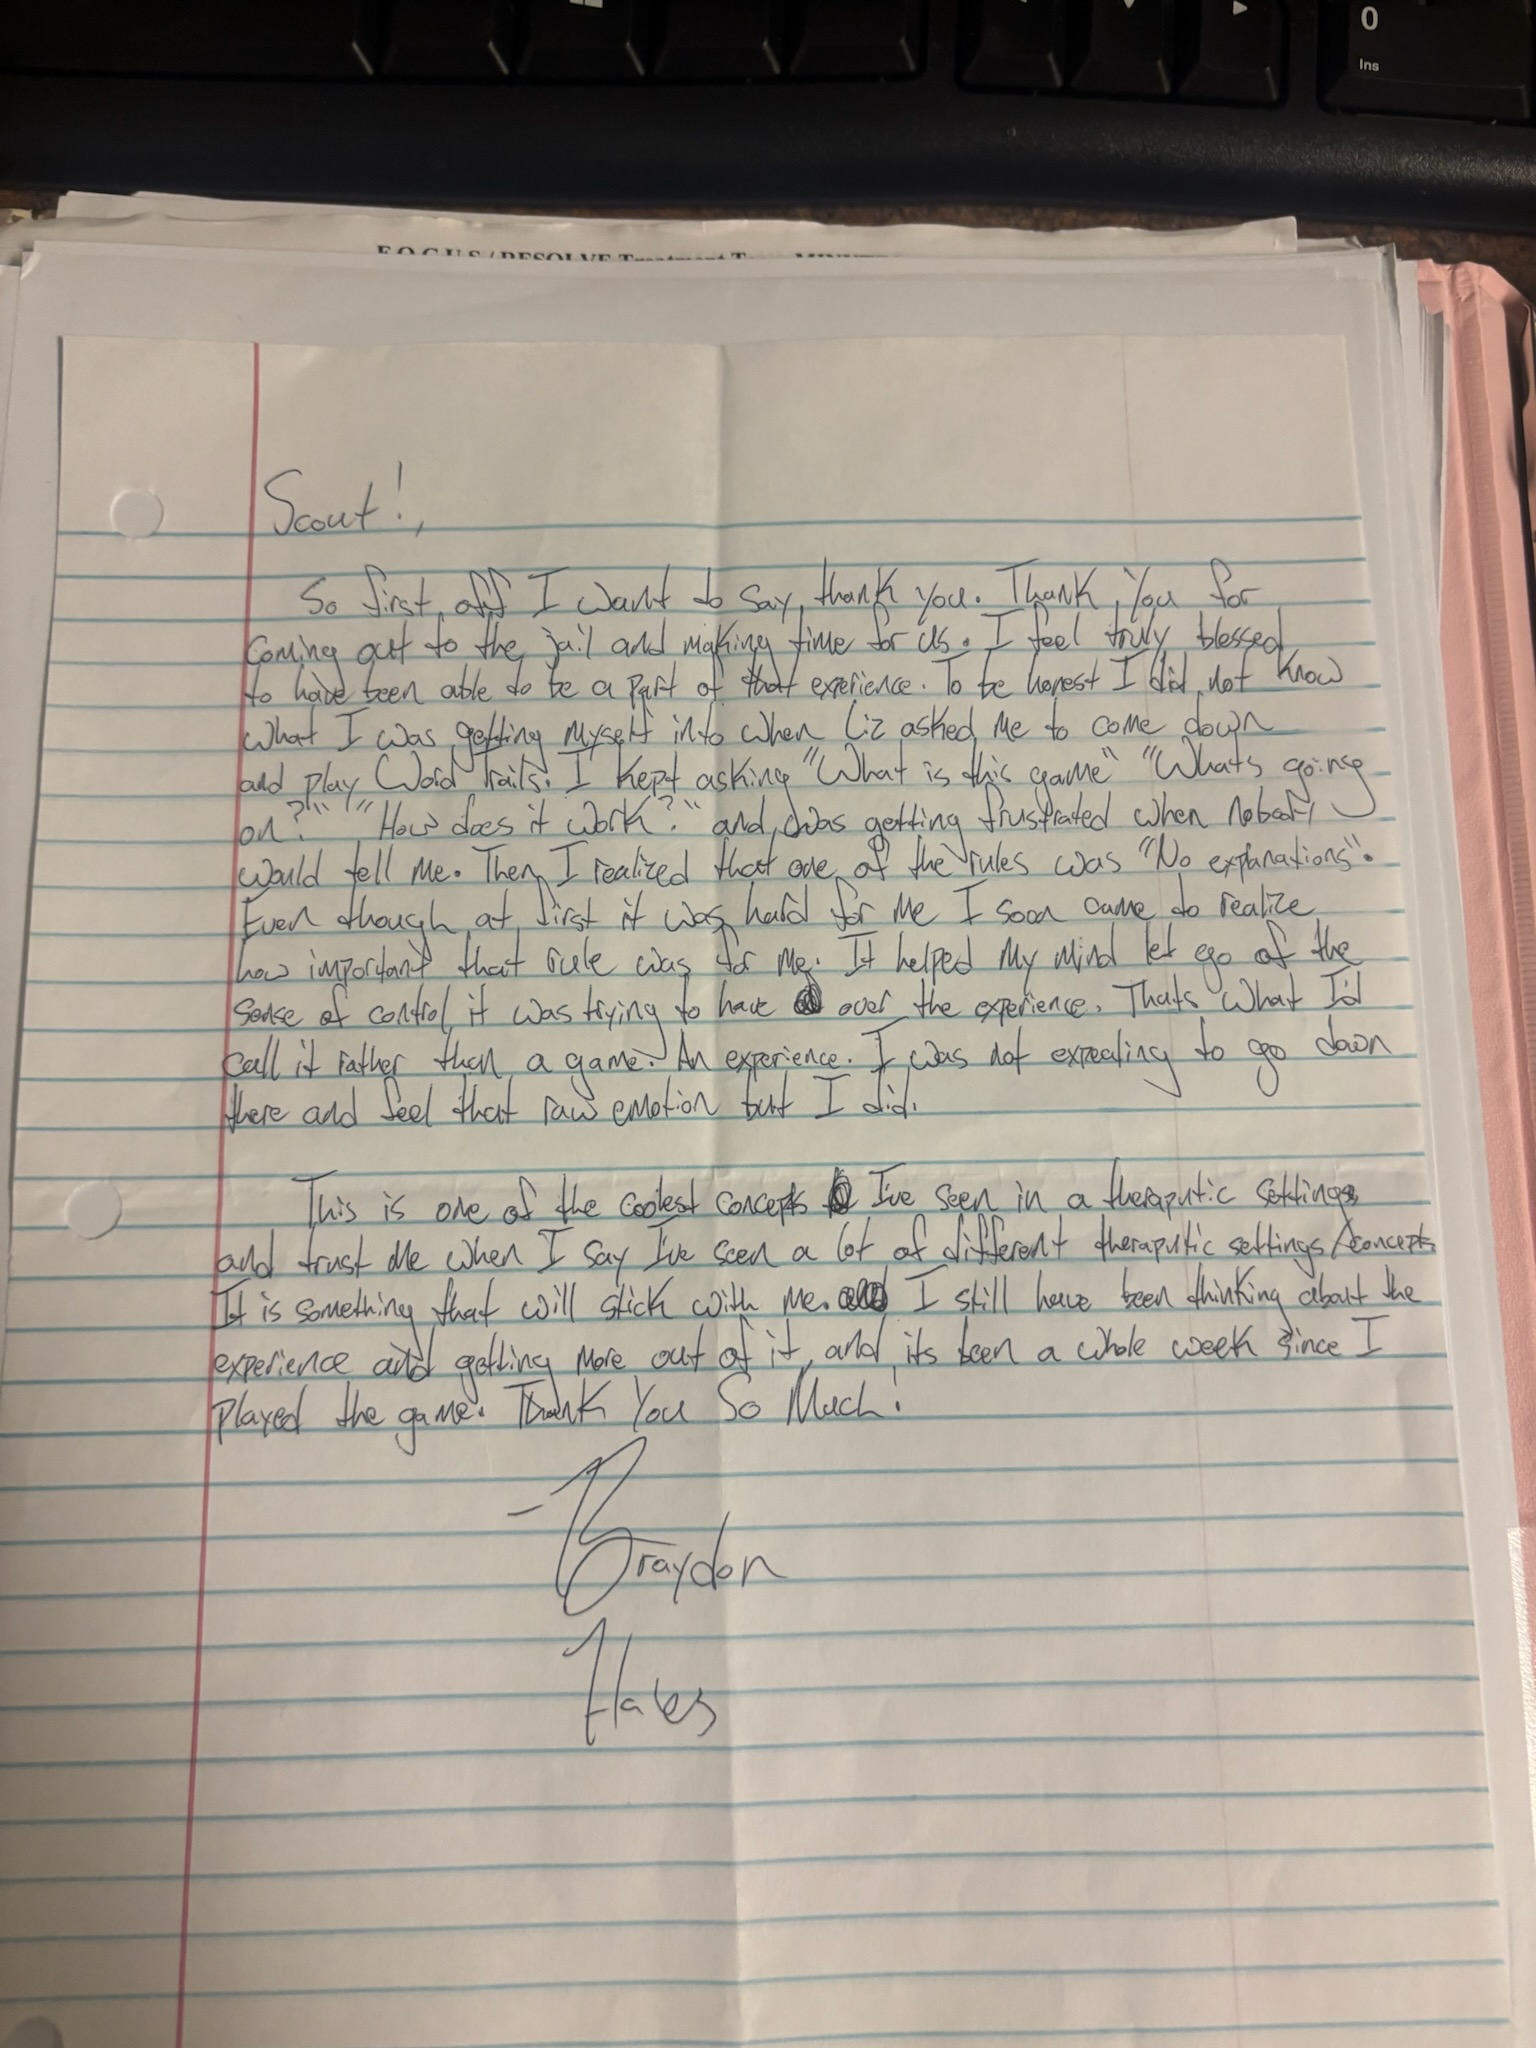 0
Ins
F.O.C.U.S / RESOLVE Treatment Team MINUTES
Scout!,
So first off I want to say, thank you. Thank you for
coming out to the jail and making time for us. I feel truly blessed
to have been able to be a part of that experience. To be honest I did not know
what I was getting myself into when Liz asked me to come down
and play Word Trails. I kept asking "What is this game" "Whats going
on?" "How does it work?" and was getting frustrated when nobody
would tell me. Then I realized that one of the rules was "No explanations".
Even though at first it was hard for me I soon came to realize
how important that rule was for me. It helped my mind let go of the
sense of control it was trying to have over the experience. Thats what I'd
call it rather than a game. An experience. I was not expecting to go down
there and feel that raw emotion but I did.
This is one of the coolest concepts I've seen in a theraputic settings
and trust me when I say I've seen a lot of different theraputic settings/concepts
It is something that will stick with me. I still have been thinking about the
experience and getting more out of it, and its been a whole week since I
played the game. Thank You So Much!
- Braydon